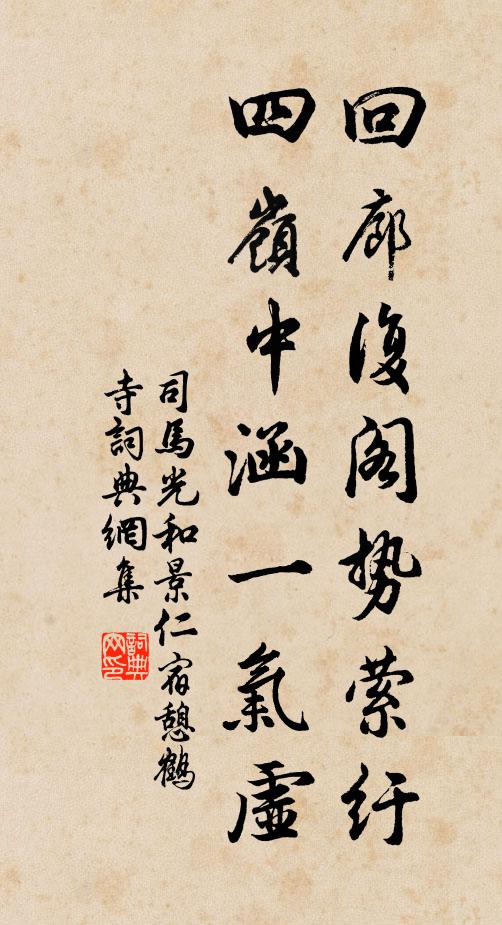 回廊復阁势萦纡
四嶺中涵一氣虛
司馬光和景仁宿憩鶴
寺詞典網集
詞典网印